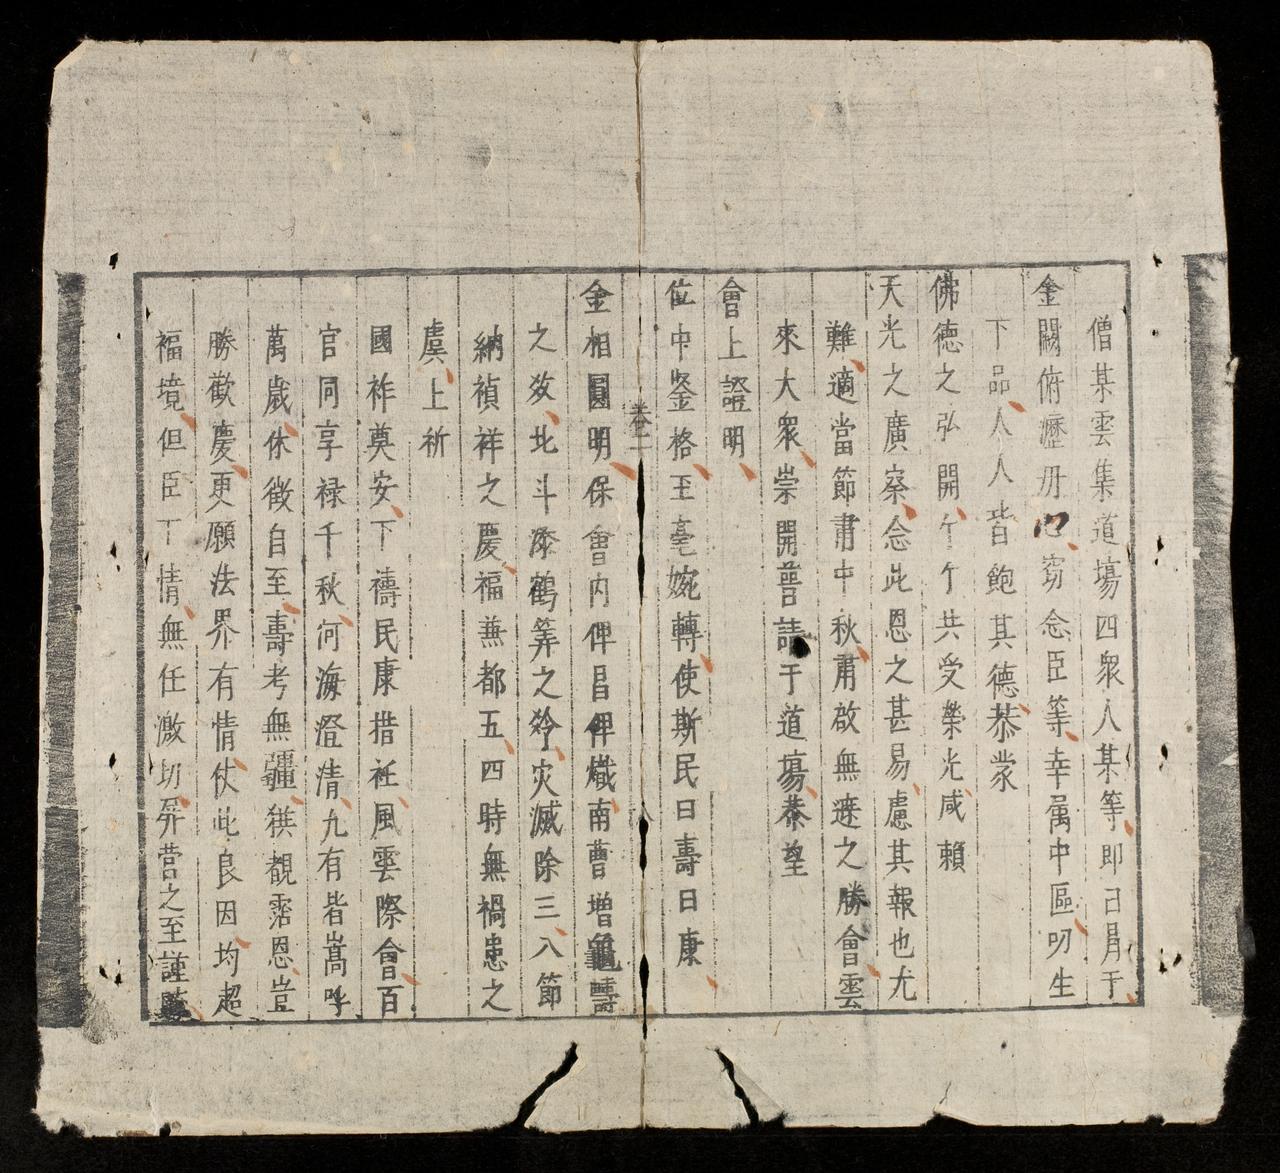 僧某雲集道場四衆人某等即己眉于
金闕俯瀝丹心窃念臣等幸属中區叨生
下品人人皆飽其德恭䝉
佛德之弘開个个共受榮光咸賴
天光之廣察念此恩之甚易慮其報也尤
難適當節肅中秋肅啟無遮之勝會雲
來大衆崇開普請于道塲恭望
會上證明
位中鉴格至毫婉轉使斯民曰壽曰康
卷一
八
金相圓明保會内俾昌俾熾南曹增龜壽
之效北斗添鶴筭之矜灾滅除三八節
納禎祥之慶福無都五四時無禍患之
虞上祈
國祚奠安下禱民康措衽風雲際會百
官同享禄千秋河海澄清九有皆嵩呼
萬歲休徵自至壽考無疆獲覩霑恩豈
勝歡慶更願法界有情仗此良因均超
福境但臣下情無任激切屏营之至謹